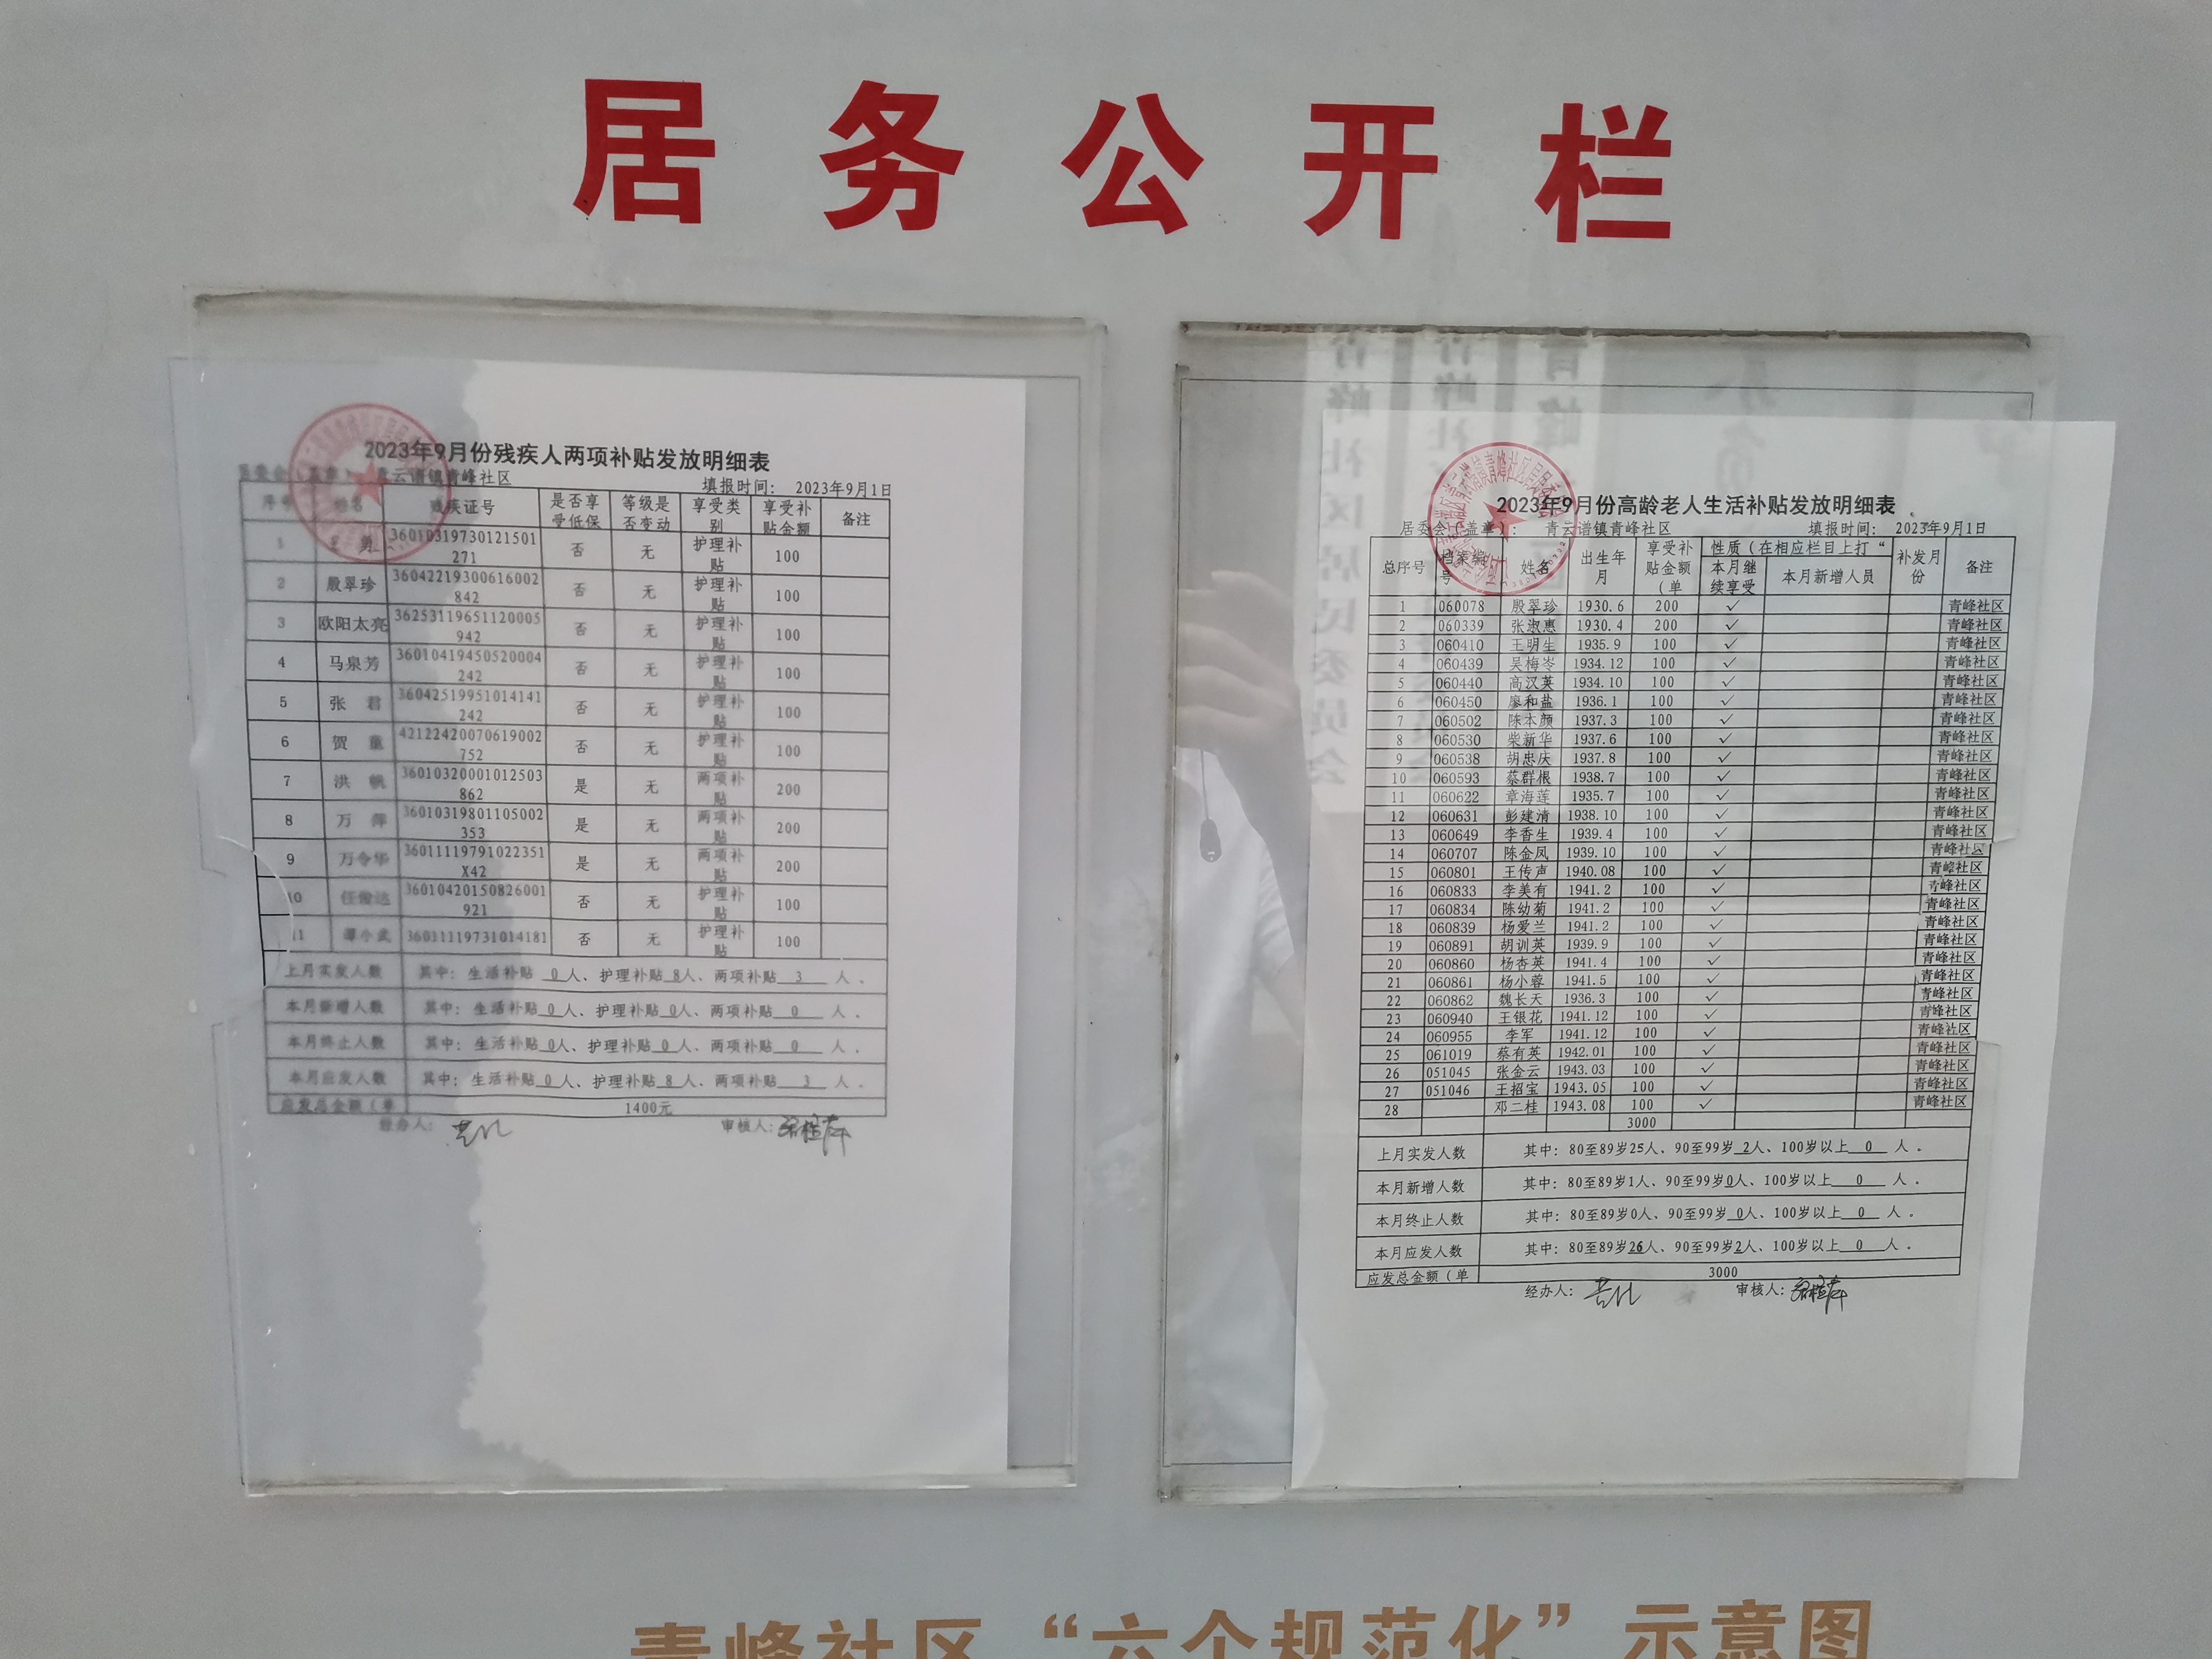 居务公开栏
2023年9月份残疾人两项补贴发放明细表
青云谱镇青峰社区 填报时间： 2023年9月1日
序号 姓名 残疾证号 是否享受低保 等级是否变动 享受类别 享受补贴金额 备注
1 勇 36010319730121501271 否 无 护理补贴 100
2 殷翠珍 36042219300616002842 否 无 护理补贴 100
3 欧阳太亮 36253119651120005942 否 无 护理补贴 100
4 马泉芳 36010419450520004242 否 无 护理补贴 100
5 张 君 36042519951014141242 否 无 护理补贴 100
6 贺 童 42122420070619002752 否 无 护理补贴 100
7 洪 帆 36010320001012503862 是 无 两项补贴 200
8 万 萍 36010319801105002353 是 无 两项补贴 200
9 万令华 36011119791022351X42 是 无 两项补贴 200
10 36010420150826001921 否 无 护理补贴 100
11 谭小武 36011119731014181 否 无 护理补贴 100
上月实发人数 其中：生活补贴 0 人、护理补贴 8 人、两项补贴 3 人．
本月新增人数 其中：生活补贴 0 人、护理补贴 0 人、两项补贴 0 人．
本月终止人数 其中：生活补贴 0 人、护理补贴 0 人、两项补贴 0 人．
本月应发人数 其中：生活补贴 0 人、护理补贴 8 人、两项补贴 3 人．
应发总金额（单 1400元
经办人： 审核人：
2023年9月份高龄老人生活补贴发放明细表
居委会（盖章）： 青云谱镇青峰社区 填报时间： 2023年9月1日
总序号 档案编号 姓名 出生年月 享受补贴金额（单 性质（在相应栏目上打“ 补发月份 备注
本月继续享受 本月新增人员
1 060078 殷翠珍 1930.6 200 ✓ 青峰社区
2 060339 张淑惠 1930.4 200 ✓ 青峰社区
3 060410 王明生 1935.9 100 ✓ 青峰社区
4 060439 吴梅岑 1934.12 100 ✓ 青峰社区
5 060440 高汉英 1934.10 100 ✓ 青峰社区
6 060450 廖和盐 1936.1 100 ✓ 青峰社区
7 060502 陈本颜 1937.3 100 ✓ 青峰社区
8 060530 柴新华 1937.6 100 ✓ 青峰社区
9 060538 胡忠庆 1937.8 100 ✓ 青峰社区
10 060593 蔡群根 1938.7 100 ✓ 青峰社区
11 060622 章海莲 1935.7 100 ✓ 青峰社区
12 060631 彭建清 1938.10 100 ✓ 青峰社区
13 060649 李香生 1939.4 100 ✓ 青峰社区
14 060707 陈金凤 1939.10 100 ✓ 青峰社区
15 060801 王传声 1940.08 100 ✓ 青峰社区
16 060833 李美有 1941.2 100 ✓ 青峰社区
17 060834 陈幼菊 1941.2 100 ✓ 青峰社区
18 060839 杨爱兰 1941.2 100 ✓ 青峰社区
19 060891 胡训英 1939.9 100 ✓ 青峰社区
20 060860 杨杏英 1941.4 100 ✓ 青峰社区
21 060861 杨小蓉 1941.5 100 ✓ 青峰社区
22 060862 魏长天 1936.3 100 ✓ 青峰社区
23 060940 王银花 1941.12 100 ✓ 青峰社区
24 060955 李军 1941.12 100 ✓ 青峰社区
25 061019 蔡有英 1942.01 100 ✓ 青峰社区
26 051045 张金云 1943.03 100 ✓ 青峰社区
27 051046 王招宝 1943.05 100 ✓ 青峰社区
28 邓二桂 1943.08 100 ✓ 青峰社区
3000
上月实发人数 其中：80至89岁25人、90至99岁 2 人、100岁以上 0 人．
本月新增人数 其中：80至89岁1人、90至99岁0人、100岁以上 0 人．
本月终止人数 其中：80至89岁0人、90至99岁 0 人、100岁以上 0 人．
本月应发人数 其中：80至89岁26人、90至99岁2人、100岁以上 0 人．
应发总金额（单 3000
经办人： 审核人：
青峰社区“六个规范化”示意图